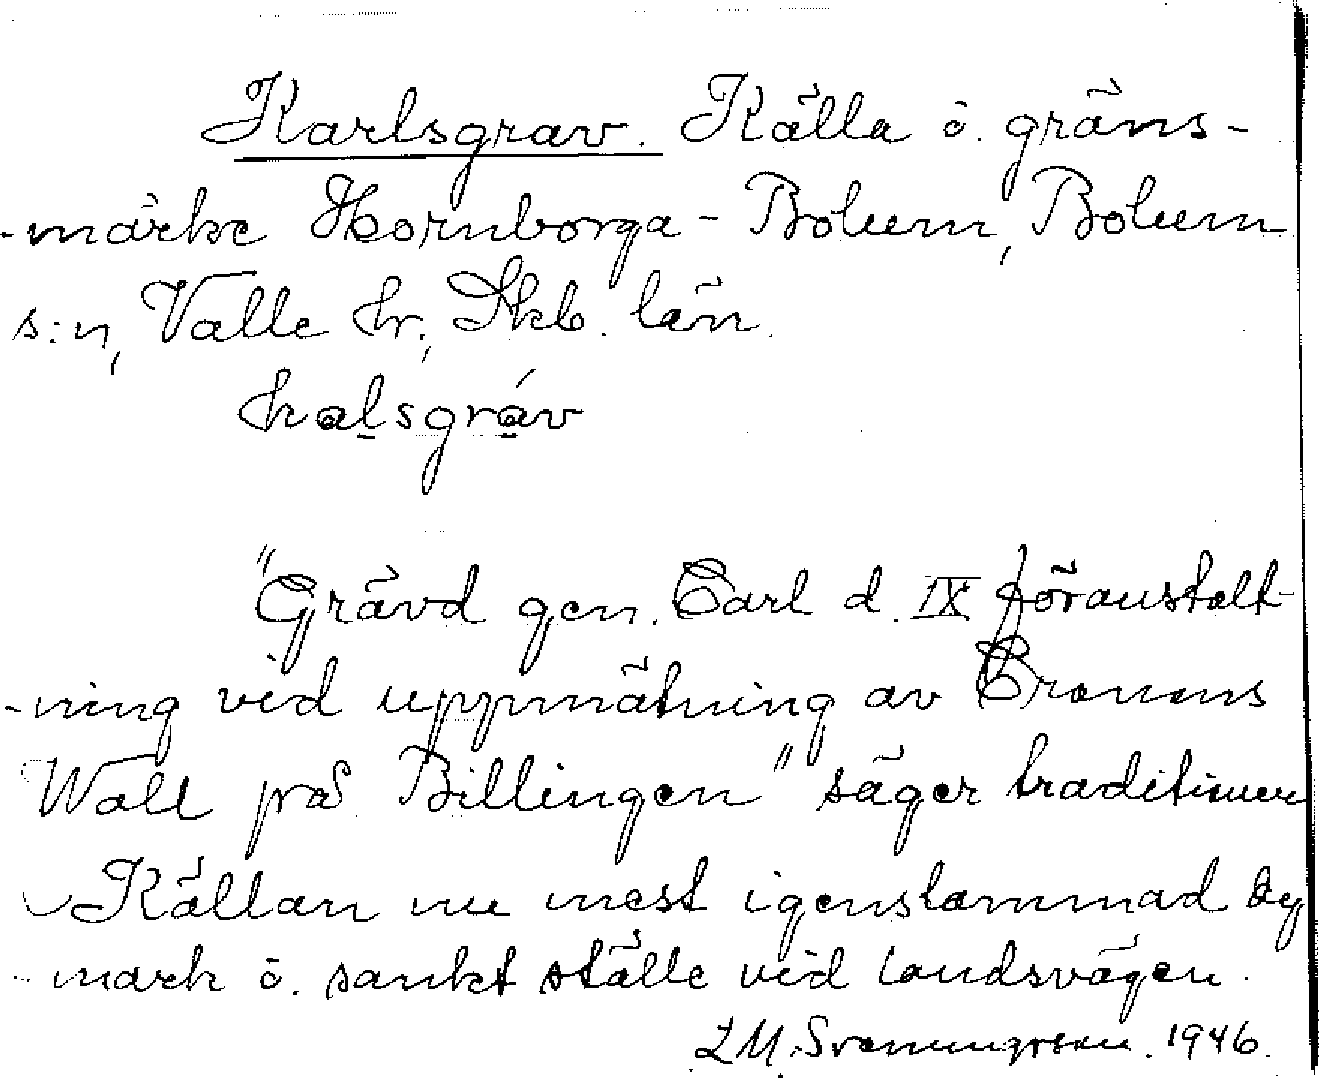 Karlsgrav. Källa ö. gräns-
-märke Hornborga - Bolum, Bolum
s:n, Valle hr., Skb. län.
kalsgráv
"Grävd gen. Carl d. IX föranstalt-
-ning vid uppmätning av Cronans
Wall på Billingen" säger traditionen
Källan nu mest igenslammad Dy
-mark ö. sankt ställe vid landsvägen.
L M. Svenungsson. 1946.